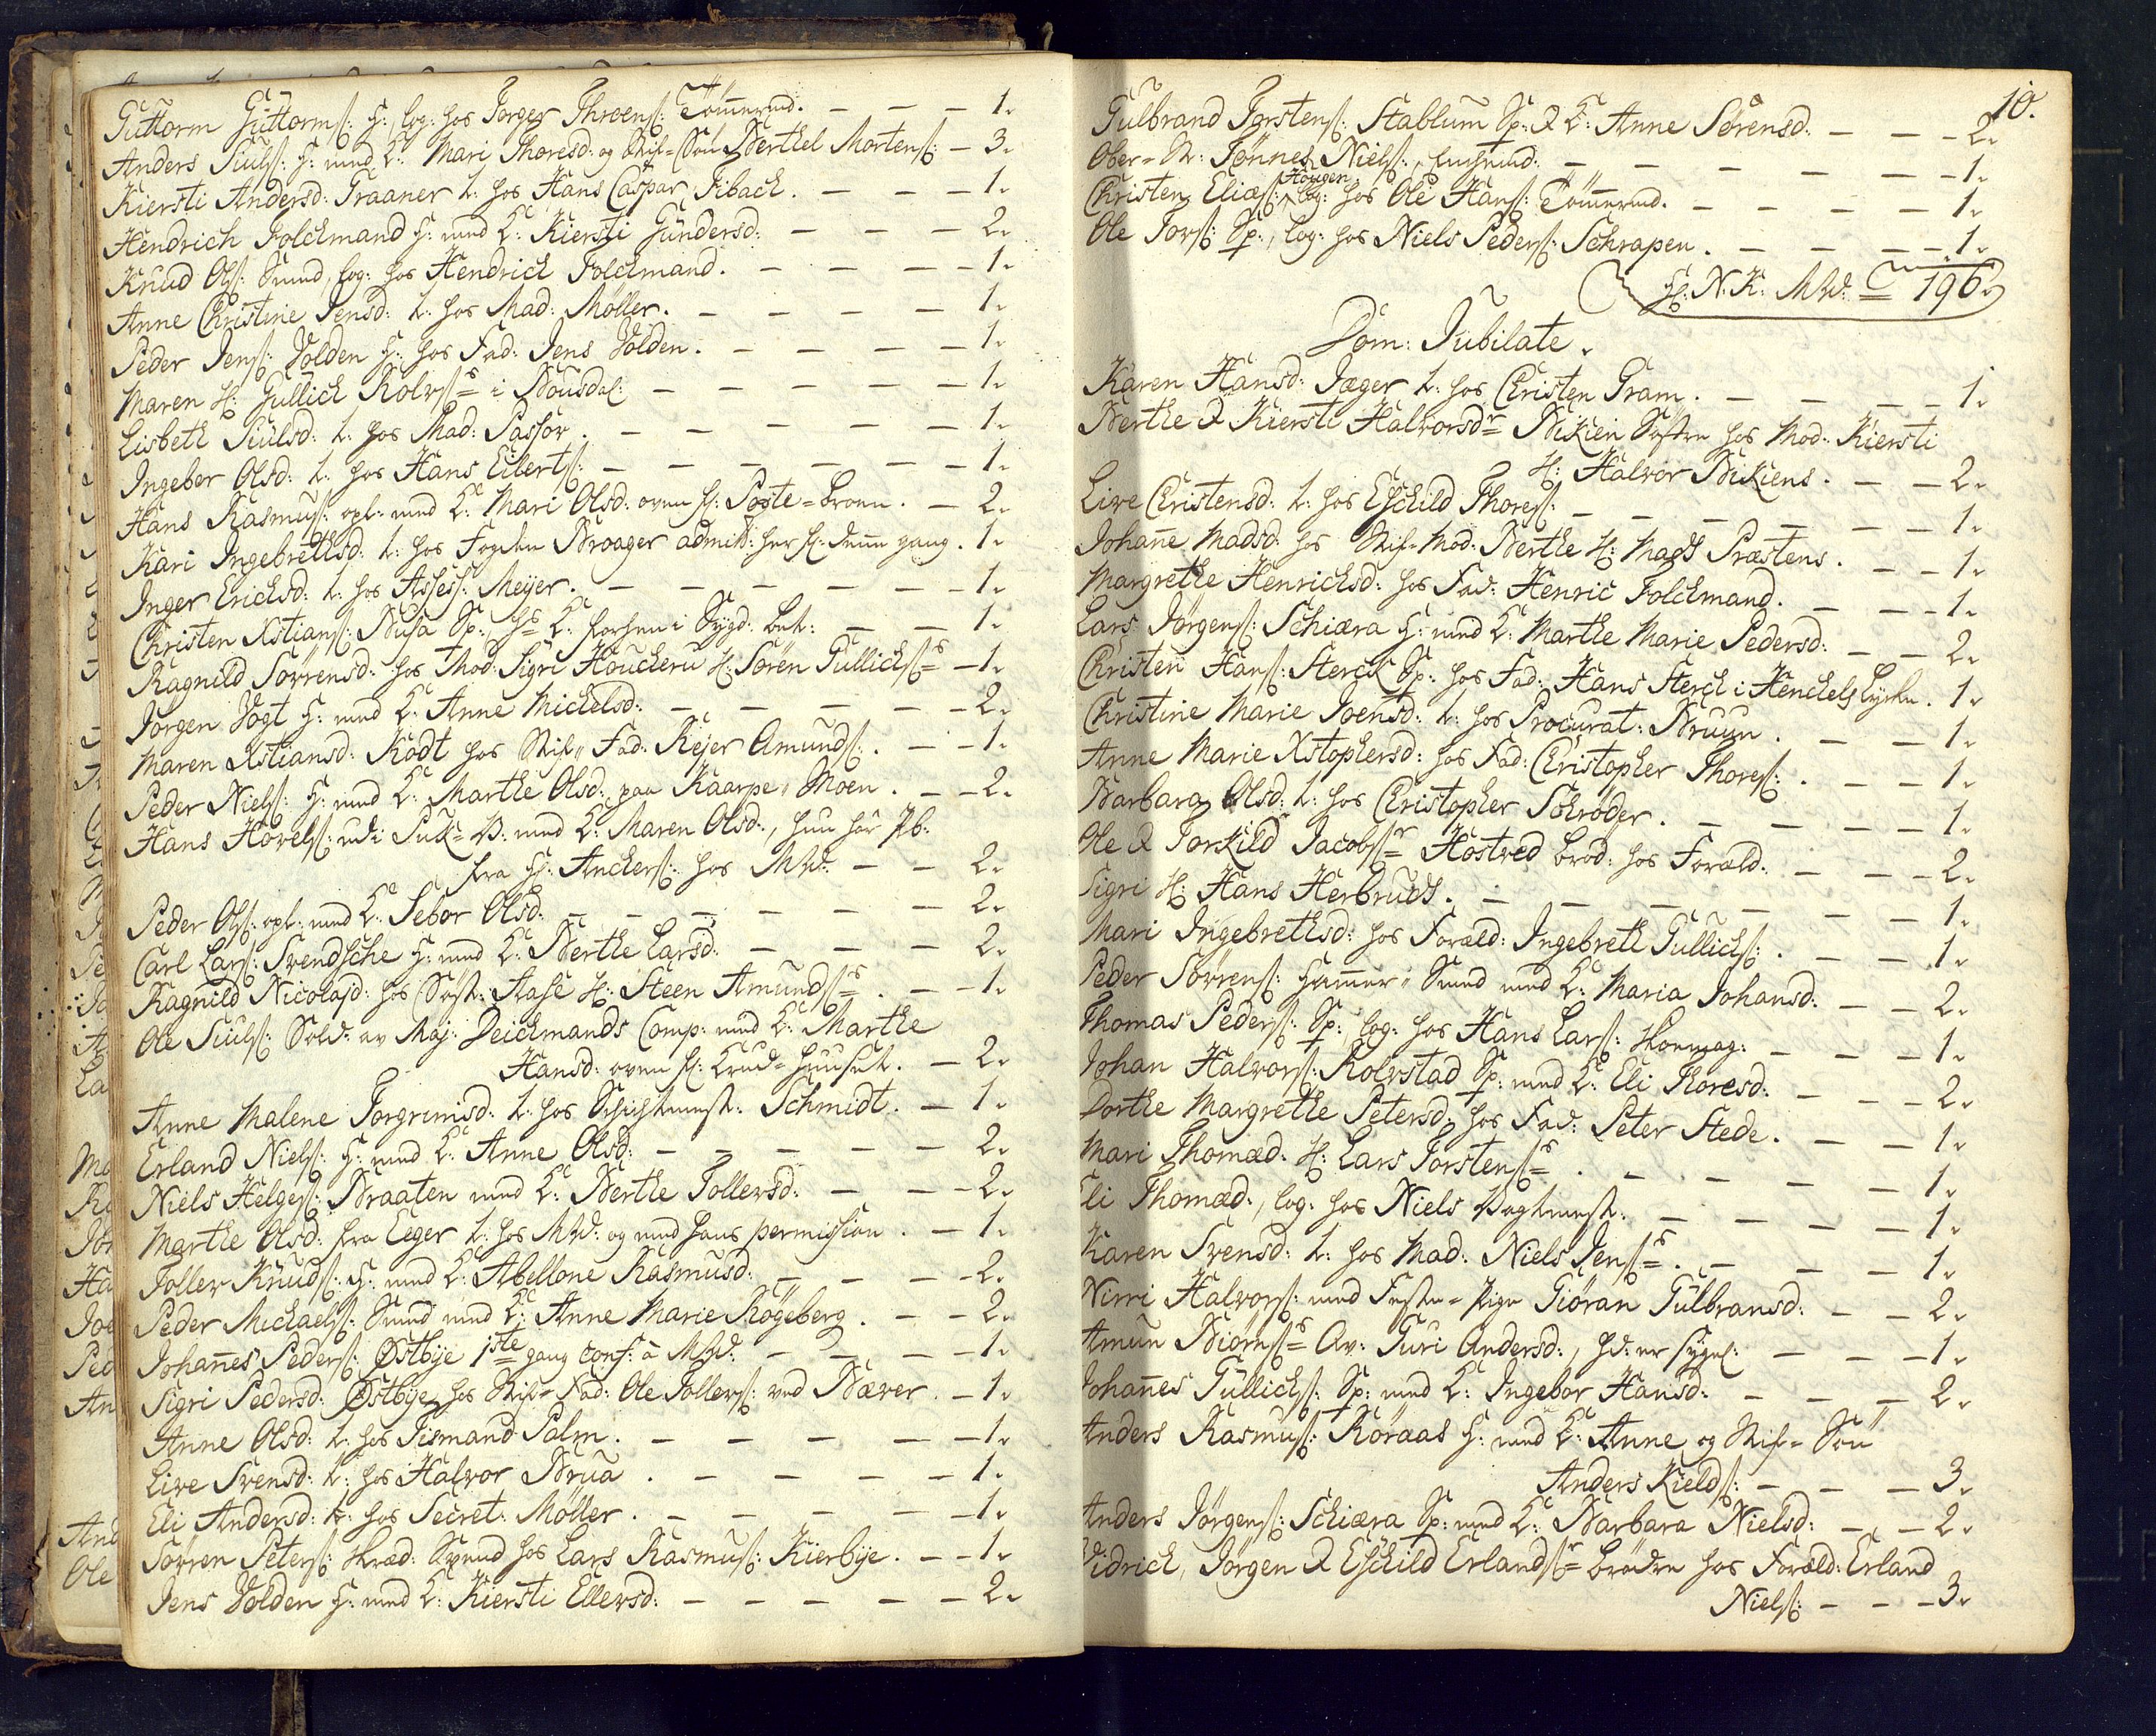 Guttorm Guttorms: H: log: hos Jørger Throens: Tømmermd. — — — 1.
Anders Siuls: H: med K: Mari Thoresd: og Stif-Søn Berthel Mortens: — 3.
Kiersti Andersd: Traaner t: hos Hans Caspar Fibach. — — — 1.
Hendrich Folckmand H: med K: Kiersti Gundersd: — — — 2.
Knud Ols: Smed, log: hos Hendrich Folckmand. — — — — 1.
Anne Christine Jensd: t: hos Mad: Møller. — — — — 1.
Peder Jens: Volden H: hos Fad: Jens Volden. — — — — 1.
Maren H: Gullich Rolvs: i Bousdal: — — — — 1.
Lisbeth Siulsd: t: hos Mad: Passov. — — — — — 1.
Ingebor Olsd: t: hos Hans Eilerts: — — — — — 1.
Hans Rasmus: opl: med K: Mari Olsd: oven f: Poste-Broen. — 2.
Kari Ingebrethsd: t: hos Fogden Broager admitt: her f: denne gang. 1.
Inger Erichsd: t: hos Assess: Meyer. — — — — — 1.
Christen Xstians: Busa Sp: K: forhen i Sygd: bet: — — 1.
Ragnild Sørrensd: hos Mod: Sigri Houcheru H: Søren Gullichs: — 1.
Jørgen Vogt H: med K: Anne Michelsd: — — — — — 2.
Maren Xstiansd: Kodt hos Stif-Fad: Rejer Amunds: . — — 1.
Peder Niels: H: med K: Marthe Olsd: paa Kaarpe-Moen. — — 2.
Hans Hovels: udi Suk-B: med K: Maren Olsd:, hun har Pb:
fra H: Anchers: hos MW: — — 2.
Peder Ols: opl: med K: Sebor Olsd: — — — — — 2.
Carl Lars: Svendsche H: med K: Berthe Larsd: — — — — 2.
Ragnild Nicolajd: hos Søst: Aase H: Steen Amunds: . — — 1.
Ole Siuls: Sold: av Maj: Deichmands Comp: med K: Marthe
Hansd: oven f: Krud-Huuset. — 2.
Anne Malene Torgrimsd: t: hos Schichtmest: Schmidt. — 1.
Erland Niels: H: med K: Anne Olsd: — — — — — 2.
Niels Helges: Braaten med K: Berthe Tollevsd: — — — 2.
Marthe Olsd: fra Eeger t: hos MW: og med hans permission. — 1.
Toller Knuds: H: med K: Abellone Rasmusd: — — — — 2.
Peder Michaels: Smed med K: Anne Marie Rögeberg. — — 2.
Johannes Peders: Østbye 1ste gang conf: à MW: — — — — 1.
Sigri Pedersd: Østbye hos Stif-Fad: Ole Tollevs: ved Bæver. — 1.
Anne Olsd: t: hos Tismand Palm. — — — — — 1.
Live Svensd: t: hos Halvor Brua. — — — — — 1.
Eli Andersd: t: hos Secret: Møller. — — — — — 1.
Sørren Peters: Skræd: Svend hos Lars Rasmus: Kierbye. — — 1.
Jens Volden H: med K: Kiersti Ellevsd: — — — — — 2.
10.
Gulbrand Torstens: Stablum Sp: & K: Anne Sørensd: — — — 2.
Ober-St: Tønnes Niels:, — — — — — 1.
Christen Elias: Hougen log: hos Ole Hans: Tømmermd. — — — — 1.
Ole Tors: Sp:, log: hos Niels Peders: Schrapen. — — — — 1.
H: N. K: MW: = 196.
Dom: Jubilate.
Karen Hansd: Jæger t: hos Christen Gram. — — — — 1.
Berthe & Kiersti Halvorsdr Bikien Søstre hos Mod: Kiersti
H: Halvor Bikiens. — — 2.
Live Christensd: t: hos Eschild Thores: — — — — — 1.
Johanne Madsd: hos Stif-Mod: Berthe H: Mads Præstens. — — 1.
Margrethe Henrichsd: hos Fad: Henric Folckmand. — — — 1.
Lars Jørgens: Schiæra H: med K: Marthe Marie Pedersd: — — 2.
Christen Hans: Sterck Sp: hos Fad: Hans Sterch i Henchels Lycke. 1.
Christine Marie Joensd: t: hos Procurat: Bruun. — — — 1.
Anne Marie Xstophersd: hos Fad: Christopher Thores: . — — 1.
Barbara Olsd: t: hos Christopher Schrøder. — — — — 1.
Ole & Torkild Jacobs: Hostved Brød: hos Foræld: — — — 2.
Sigri H: Hans Herbruds. — — — — — — 1.
Mari Ingebrethsd: hos Foræld: Ingebreth Gullichs: . — — 1.
Peder Sørrens: Hammer-Smed med K: Maria Johansd: — — 2.
Thomas Peders: Sp:, log: hos Hans Lars: Skomag: — — — 1.
Johan Halvors: Rolvstad Sp: med K: Eli Thoresd: — — — 2.
Dorthe Margrethe Petersd: hos Fad: Peter Stede. — — 1.
Mari Thomæd: H: Lars Torstens: . — — — — — 1.
Eli Thomæd:, log: hos Niels Vagtmest: — — — — 1.
Karen Svensd: t: hos Mad: Niels Jens: . — — — — 1.
Nirri Halvors: med Feste-Pige Giøran Gulbransd: — — 2.
Amun Biørns: Av: Turi Andersd:, hd: er sygel: — — — 1.
Johannes Gullichs: Sp: med K: Ingebor Hansd: — — — 2.
Anders Rasmus: Røraas H: med K: Anne og Stif-Søn
Anders Kields: — — — 3.
Anders Jørgens: Schiæra Sp: med K: Barbara Nielsd: — — 2.
Didrich, Jørgen & Eschild Erlands: Brødre hos Foræld: Erland
Niels: — — — 3.